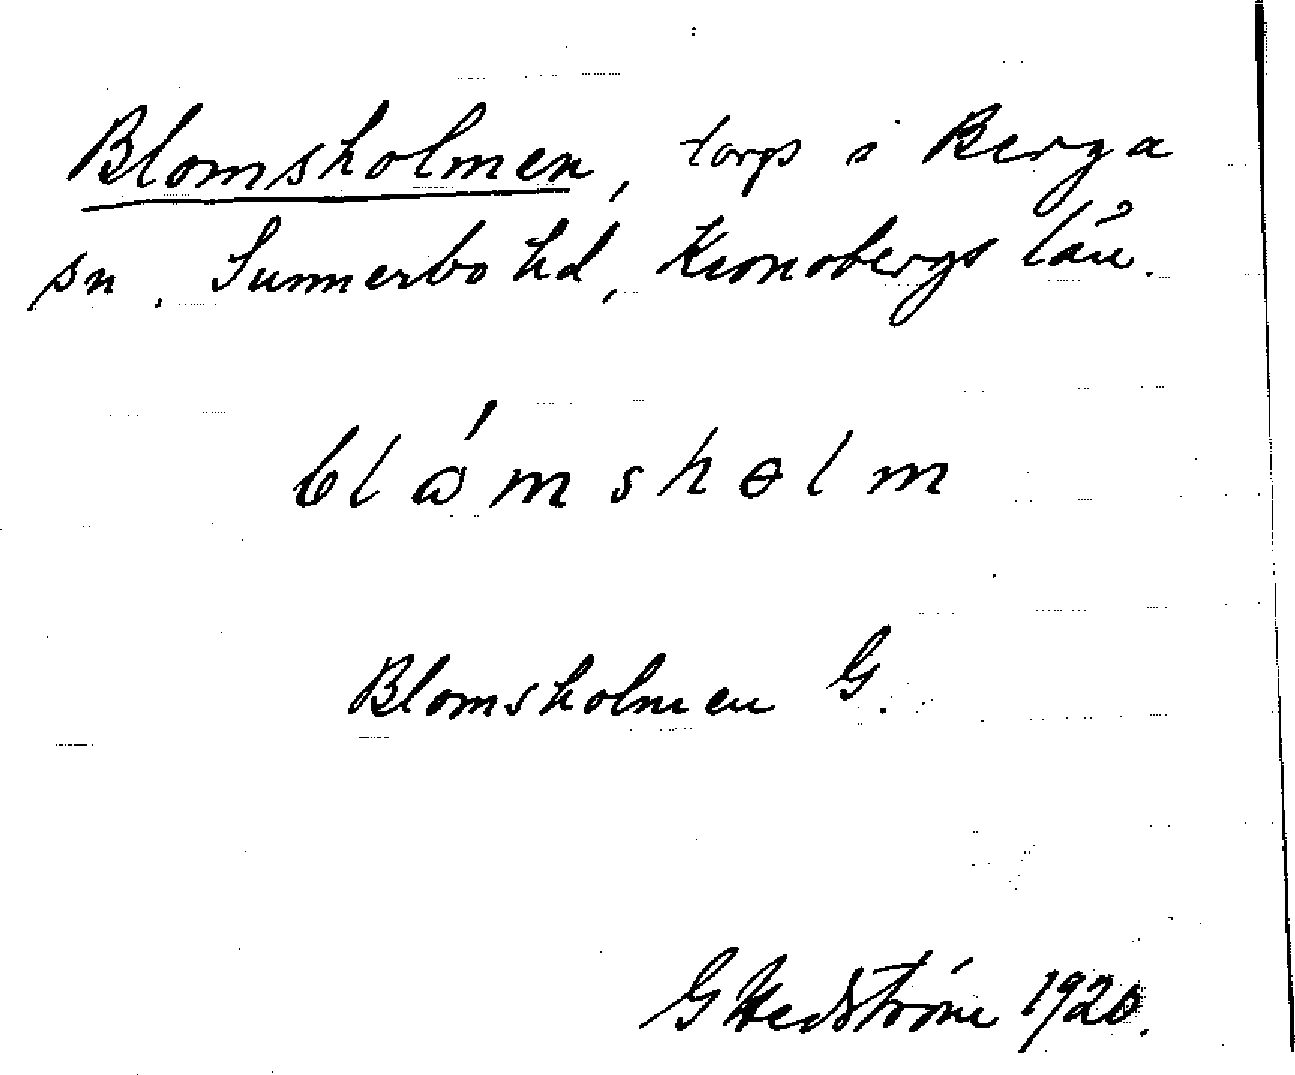 Blomsholmen, torp i Berga
sn. Sunnerbo hd, Kronobergs län.
blω´msholm
Blomsholmen G.
G Hedström 1920.